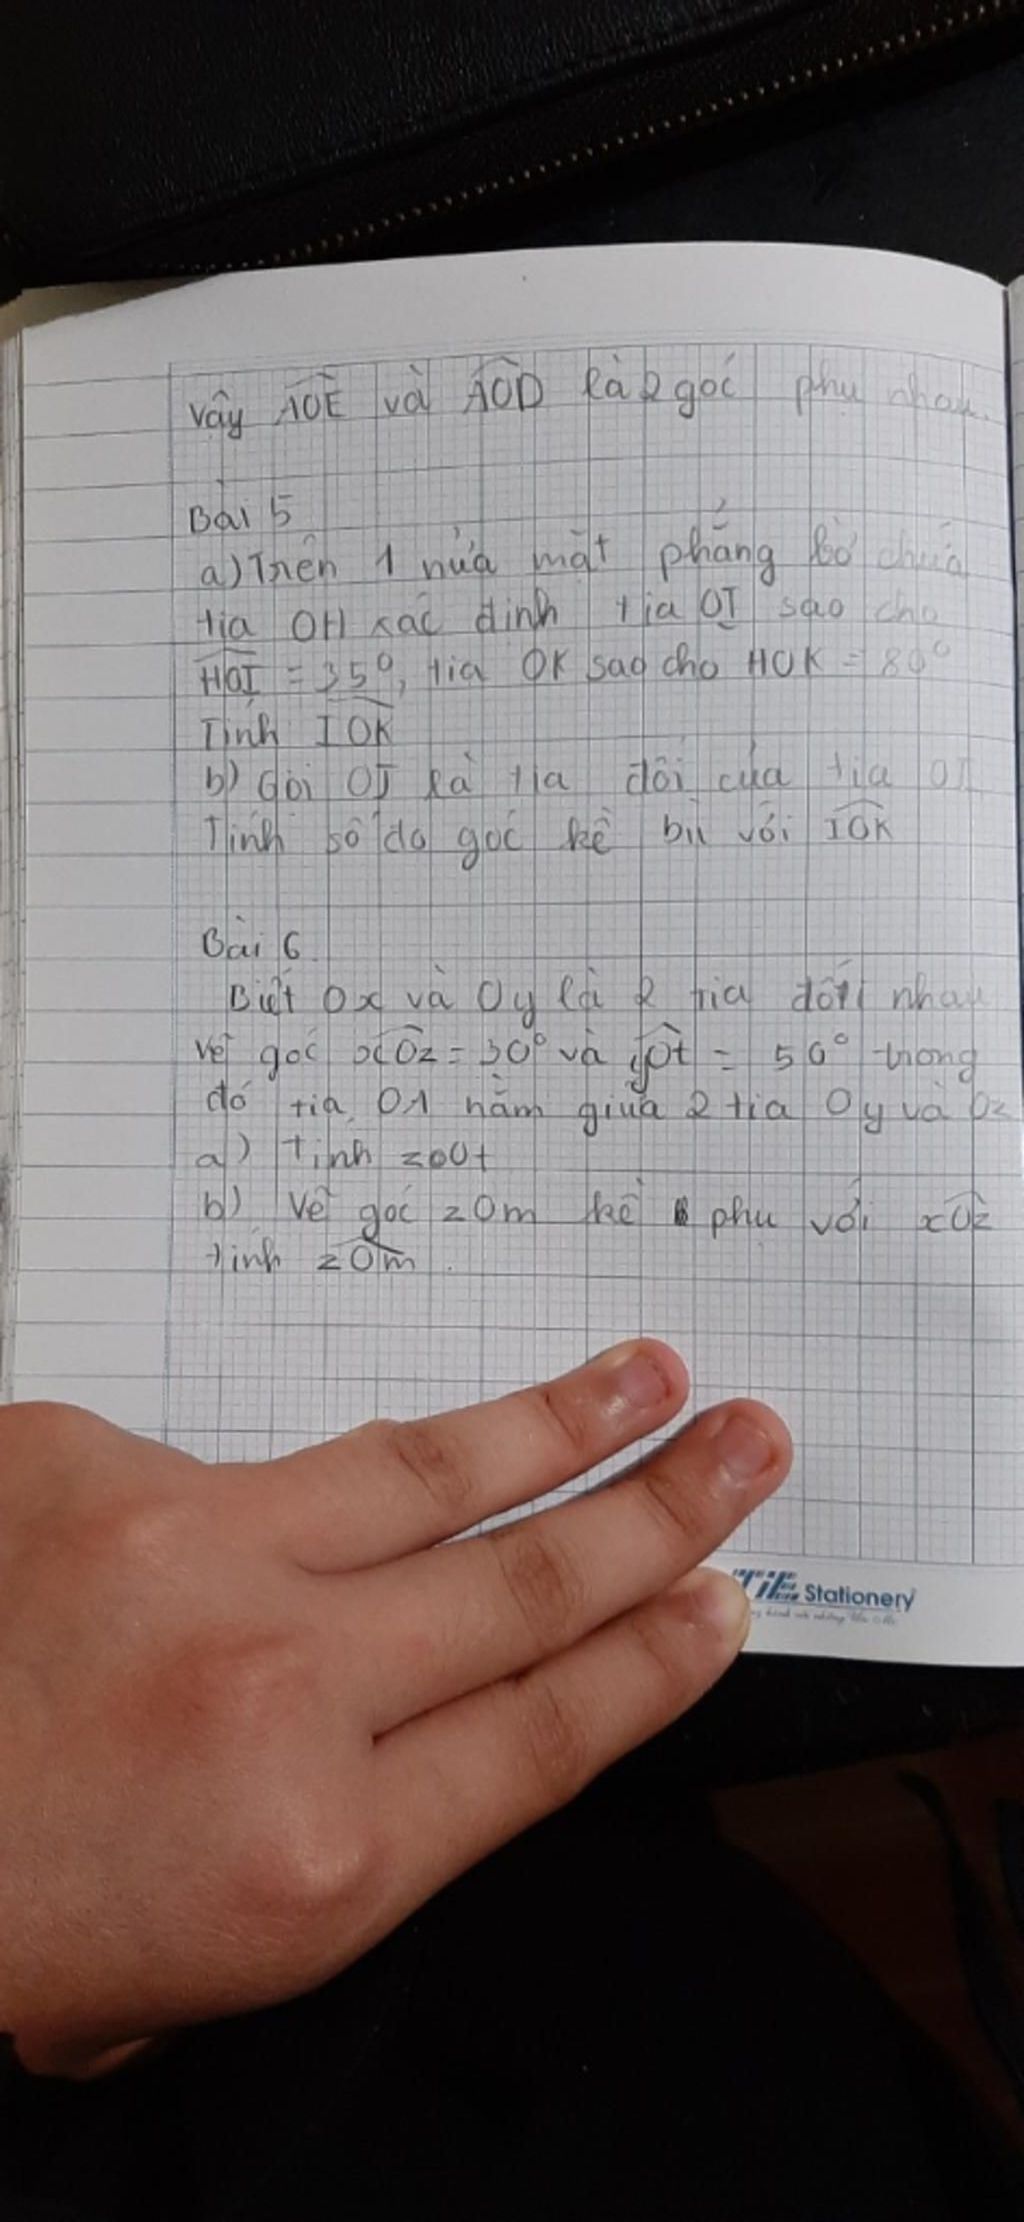 Vậy AOE và AOD là 2 góc phụ nhau.
Bài 5
a) Trên 1 nửa mặt phẳng bờ chứa
tia OH xác định tia OI sao cho
HOI = 35°, tia OK sao cho HOK = 80°
Tính IOK
b) Gọi OJ là tia đối của tia OI
Tính số đo góc kề bù với IOK
Bài 6
Biết Ox và Oy là 2 tia đối nhau
Vẽ góc xOz = 30° và yOt = 50° trong
đó tia O1 nằm giữa 2 tia Oy và Oz
a) Tính zOOt
b) Vẽ góc zOm kề phụ với xOz
tính zOm.
TiE Stationery